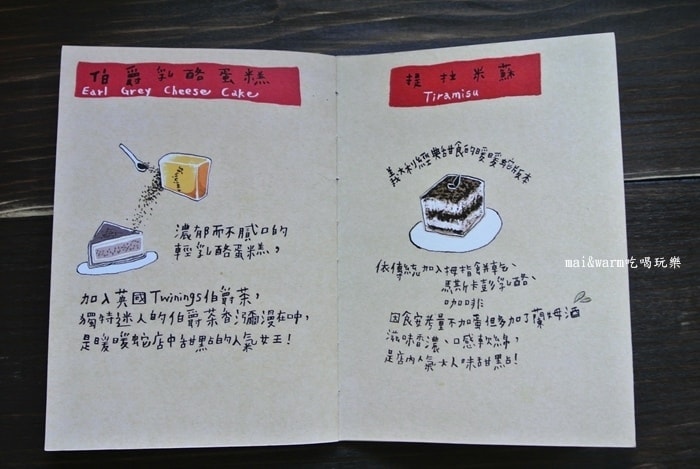 伯爵乳酪蛋糕
Earl Grey Cheese Cake
濃郁而不膩口的
輕乳酪蛋糕，
加入英國Twinings伯爵茶，
獨特迷人的伯爵茶香瀰漫在口中，
是暖暖蛇店中甜點的人氣女王！
提拉米蘇
Tiramisu
義大利經典甜食的暖暖蛇版本
依傳統加入拇指餅乾、
馬斯卡彭乳酪、
咖啡
因食安考量不加蛋但多加了蘭姆酒
滋味香濃、口感軟綿，
是店內人氣大人味甜點！
mai&warm吃喝玩樂